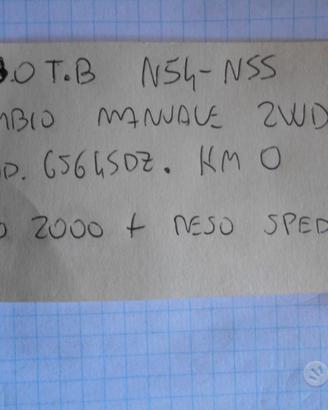 3.0 T.B N54-N55
MBIO MANUALE 2WD
D. GS645DZ. KM 0
O 2000 + RESO SPED